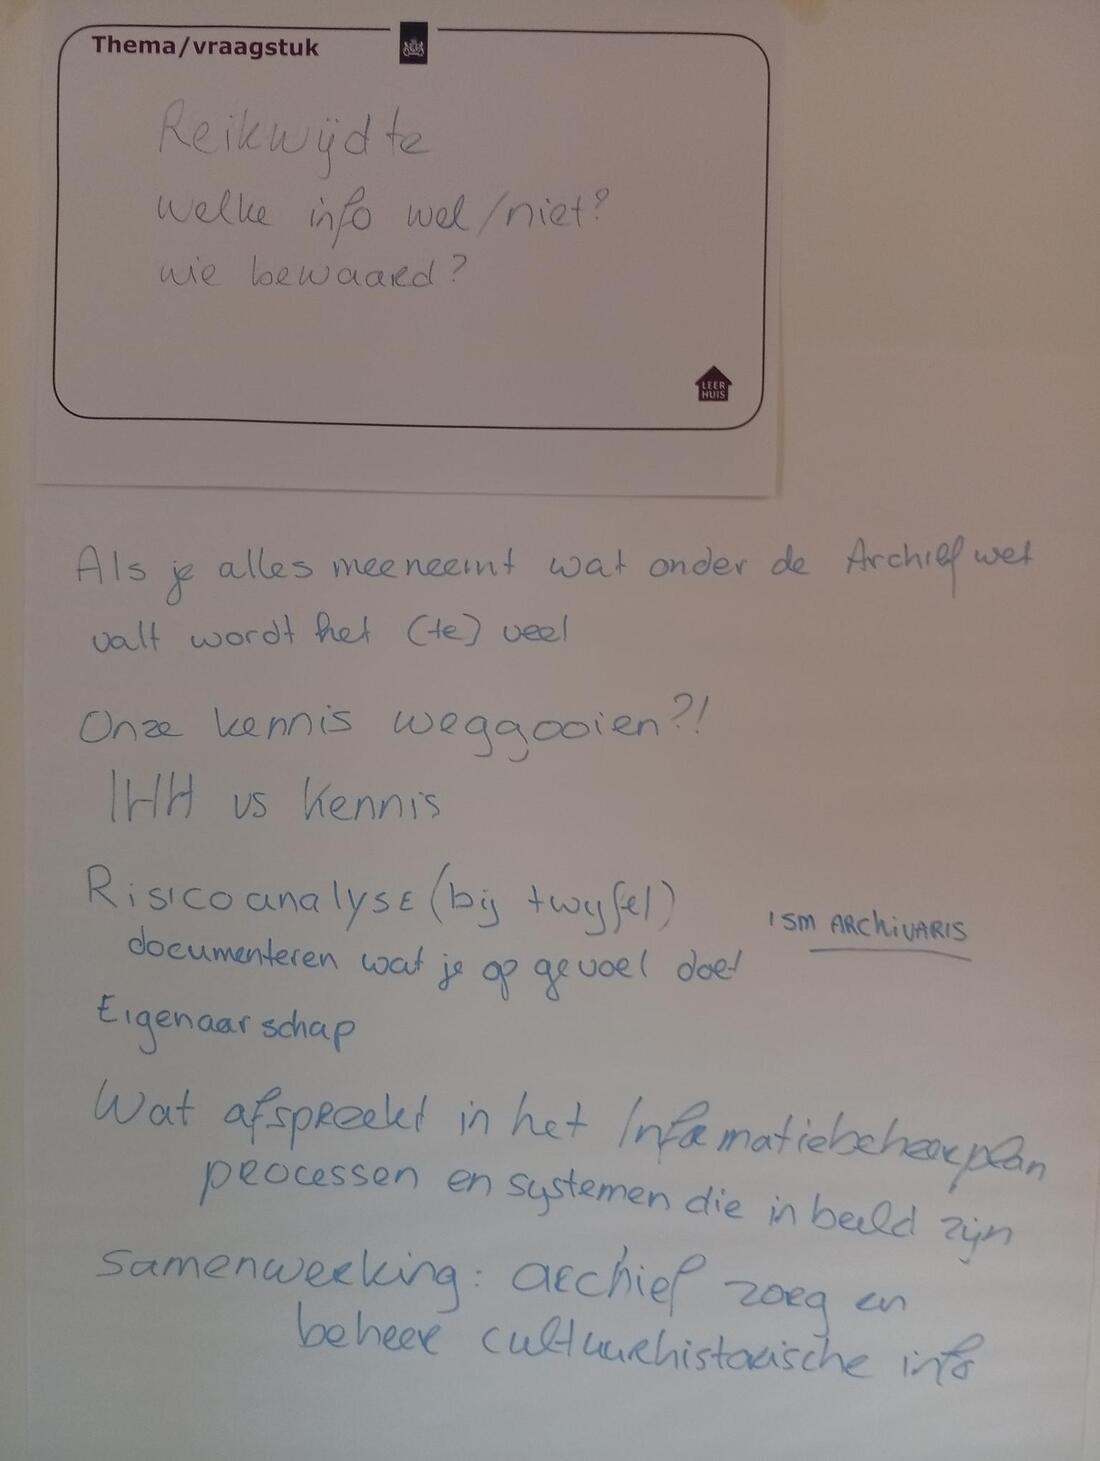 Thema/vraagstuk
Reikwijdte
welke info wel/niet?
wie bewaard?
LEER
HUIS
Als je alles meeneemt wat onder de Archiefwet
valt wordt het (te) veel
Onze kennis weggooien?!
IHH vs Kennis
Risicoanalyse (bij twijfel)
ism ARCHIVARIS
documenteren wat je op gevoel doet
Eigenaarschap
Wat afspreekt in het Informatiebeheerplan
processen en systemen die in beeld zijn
Samenwerking: archief zorg en
beheer cultuurhistorische info